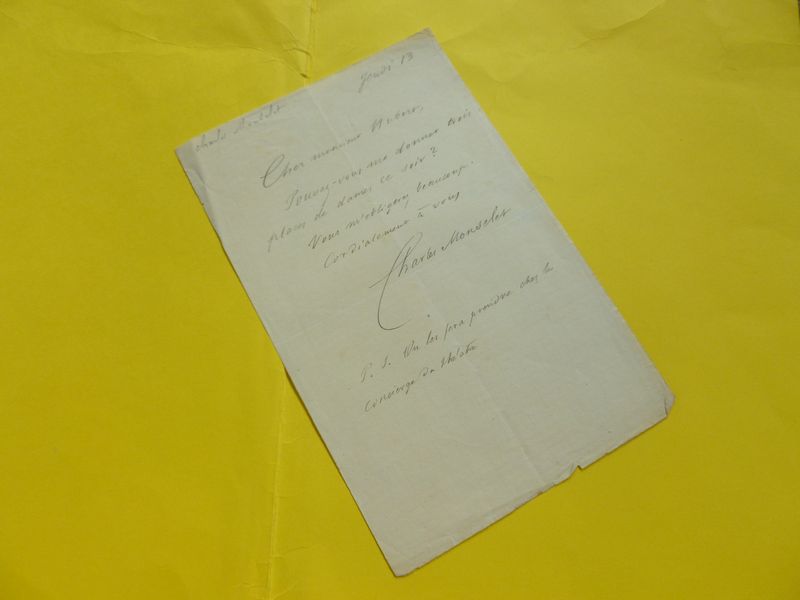 Jeudi 13
Charles Monselet
Cher monsieur
Pouvez-vous me donner trois
places de dames ce soir ?
Vous m'obligerez beaucoup.
Cordialement à vous
Charles Monselet
P. S. On les fera prendre chez le
concierge du théâtre